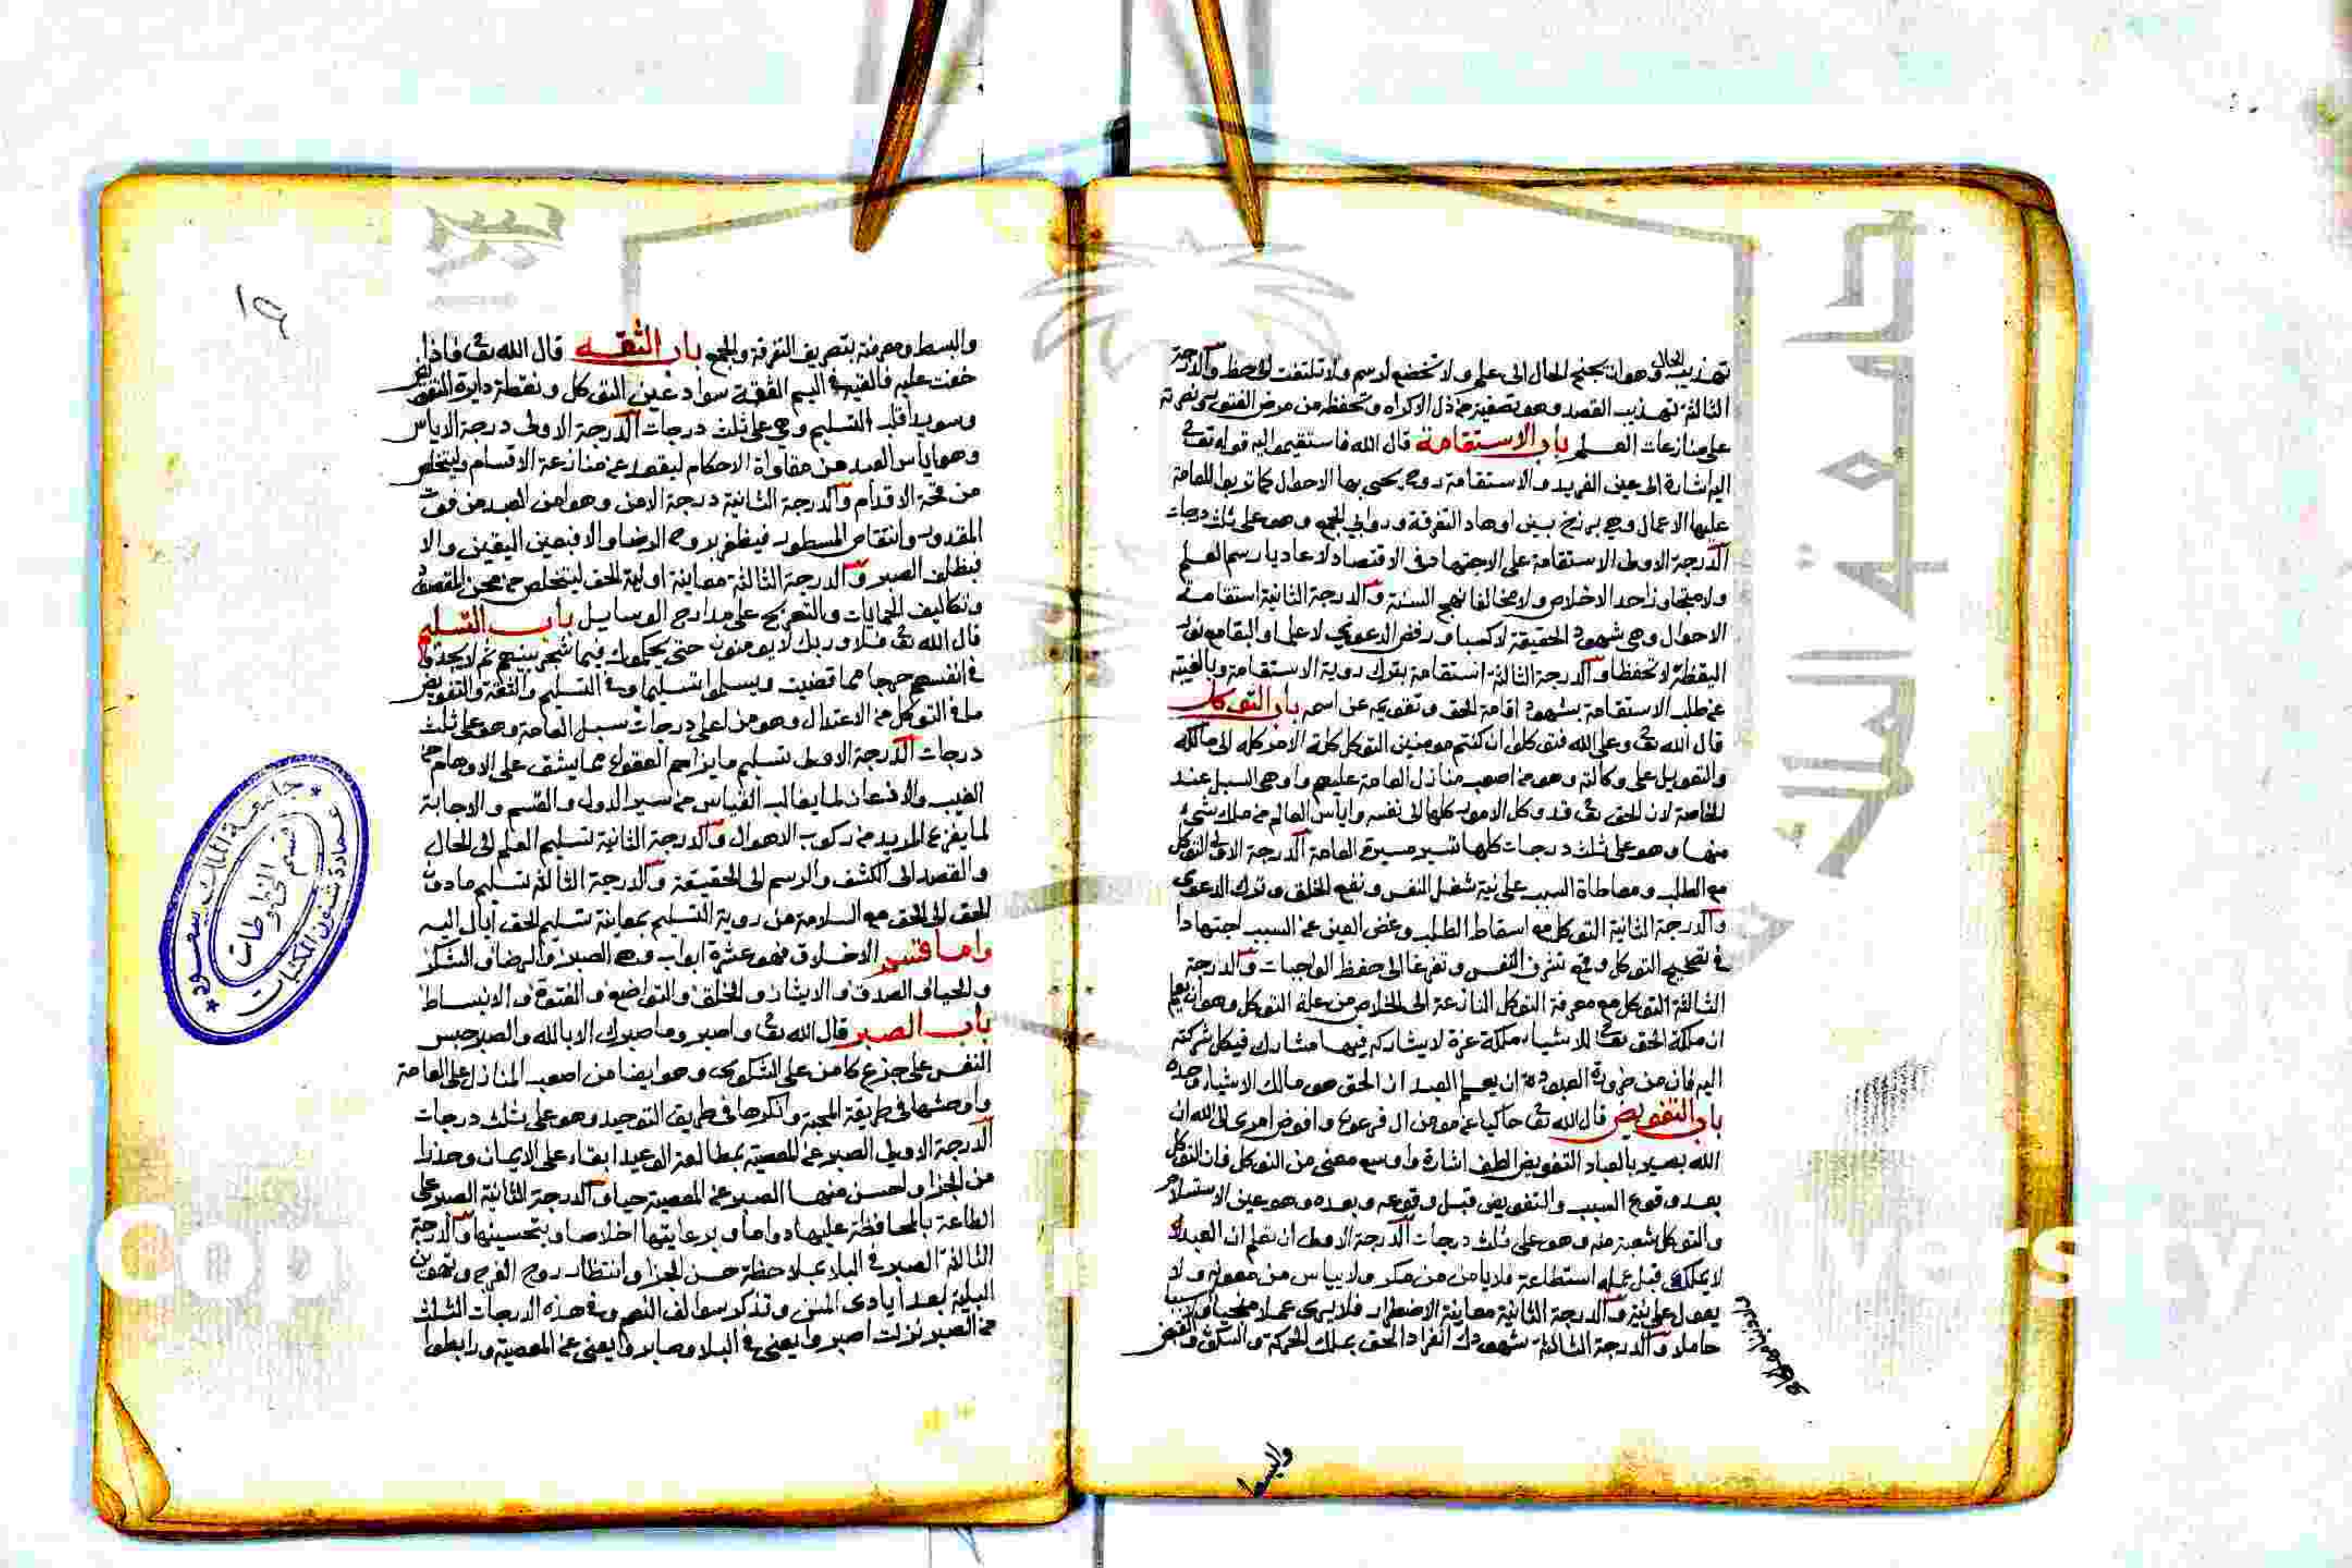 تهذيب الحال وهو ان لا يجنح الحال الى علم ولا تخضع لرسم ولا تلتفت الى حظ والدرجة
الثالثة تهذيب القصد وهو تصفيته من ذل الاكراه وتحفظه من مرض الفتور ونصرته
على منازعات العلم باب الاستقامة قال الله فاستقيموا اليه قوله تعالى
اليه اشارة الى عين التفريد والاستقامة روح يحيى بها الاحوال كما تربوا للعامة
عليها الاعمال وهي برزخ بين اوهاد التفرقة وروابي الجمع وهو على ثلث درجات
الدرجة الاولى الاستقامة على الاجتهاد في الاقتصاد لا عاديا رسم العلم
ولا متجاوزا حد الاخلاص ولا مخالفا نهج السنة والدرجة الثانية استقامة
الاحوال وهي شهود الحقيقة لا كسبا ورفض الدعوى لا علما والبقا مع نور
اليقظة لا تحفظا والدرجة الثالثة استقامة بترك روية الاستقامة وبالغيبة
عن طلب الاستقامة بشهود اقامة الحق وتقويمه عن اسمه باب التوكل
قال الله تعالى وعلى الله فتوكلوا ان كنتم مومنين التوكل كلة الامر كله الى مالكه
والتعويل على وكالته وهو من اصعب منازل العامة عليهم واوهى السبل عند
الخاصة لان الحق تعالى قد وكل الامور كلها الى نفسه وايأس العالم من ملك شئ
منها وهو على ثلث درجات كلها تسير مسيرة العامة الدرجة الاولى التوكل
مع الطلب ومعاطاة السبب على نية شغل النفس ونفع الخلق وترك الدعوى
والدرجة الثانية التوكل مع اسقاط الطلب وغض العين عن السبب اجتهادا
في تصحيح التوكل وقمع تشرف النفس وتفرغا الى حفظ الواجبات والدرجة
الثالثة التوكل مع معرفة التوكل النازعة الى الخلاص من علة التوكل وهو ان يعلم
ان ملكة الحق تعالى للاشياء ملكة عزة لا يشاركه فيها مشارك فيكل شركته
اليه فان من ضرورة العبودة ان يعلم العبد ان الحق هو مالك الاشياء وحده
باب التفويض قال الله تعالى حاكيا عن مومن ال فرعون وافوض امرى الى الله ان
الله بصير بالعباد التفويض الطف اشارة واوسع معنى من التوكل فان التوكل
بعد وقوع السبب والتفويض قبل وقوعه وبعده وهو عين الاستسلام
والتوكل شعبة منه وهو على ثلث درجات الدرجة الاولى ان تعلم ان العبد
لا يملك قبل عمله استطاعة فلا يامن من مكر ولا يياس من معونة ولا
يعول على نية والدرجة الثانية معاينة الاضطرار فلا يرى عملا منجيا
حاملا والدرجة الثالثة شهودك انفراد الحق بملك الحركة والسكون والقبض
والبسط
والبسط ومعرفته بتصريف التفرقة والجمع باب الثقـه قال الله تعالى فاذا
خفت عليه فالقيه في اليم الثقة سواد عين التوكل ونقطة دايرة التفويض
وسويدا قلب التسليم وهي على ثلث درجات الدرجة الاولى درجة الاياس
وهو اياس العبد من مقاواة الاحكام ليقعد عن منازعة الاقسام وليتخلص
من قحة الاقدام والدرجة الثانية درجة الامن وهو امن العبد من فوت
المقدور وانتقاص المسطور فيظفر بروح الرضا والا فبعين اليقين والا
فبظلف الصبر والدرجة الثالثة معاينة اولية الحق ليتخلص من محن القصود
وتكاليف الحمايات والتعريج على مدارج الوسايل باب التسليم
قال الله تعالى فلا وربك لا يومنون حتى يحكموك فيما شجر بينهم ثم لا يجدوا
في انفسهم حرجا مما قضيت ويسلموا تسليما وفي التسليم والثقة والتفويض
ما في التوكل من الاعتدال وهو من اعلى درجات سبل العامة وهو على ثلث
درجات الدرجة الاولى تسليم ما يزاحم العقول مما يشق على الاوهام من
الغيب والاذعان لما يغالب القياس من سير الدول والقسم والاجابة
لما يفزع المريد من ركوب الاهوال والدرجة الثانية تسليم العلم الى الحال
والقصد الى الكشف والرسم الى الحقيقة والدرجة الثالثة تسليم ما دون
الحق الى الحق مع السلامة من روية التسليم بمعاينة تسليم الحق اياك اليه
واما قسم الاخلاق فهو عشرة ابواب وهي الصبر والرضا والشكر
والحيا والصدق والايثار والخلق والتواضع والفتوة والانبساط
باب الصبر قال الله تعالى واصبر وما صبرك الا بالله والصبر حبس
النفس على جزع كامن على الشكوى وهو ايضا من اصعب المنازل على العامة
واوحشها في طريقة المحبة وانكرها في طريق التوحيد وهو على ثلث درجات
الدرجة الاولى الصبر عن المعصية بمطالعة الوعيد ابقاء على الايمان وحذرا
من الجزا واحسن منها الصبر عن المعصية حيا والدرجة الثانية الصبر على
الطاعة بالمحافظة عليها دواما وبرعايتها اخلاصا وبتحسينها والدرجة
الثالثة الصبر في البلا بملاحظة حسن الجزا وانتظار روح الفرج وتهوين
البلية بعد ايادى المنن وتذكر سوالف النعم وفي هذه الدرجات الثلث
من الصبر نزلت اصبروا يعنى في البلا وصابروا يعنى عن المعصية ورابطوا
جامعة الملك سعود
عمادة شئون المكتبات
قسم المخطوطات
جامعة الملك